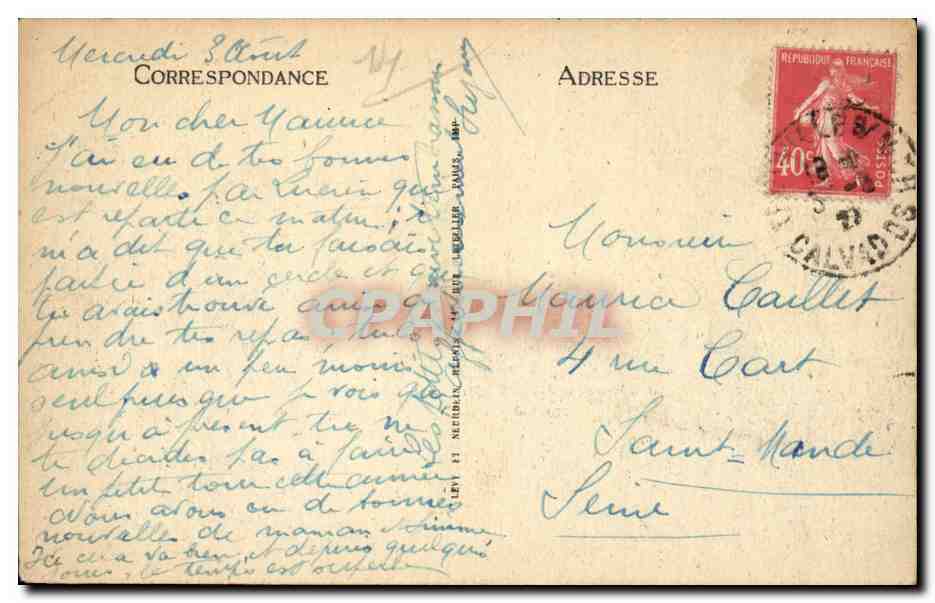 Mercredi 3 Août
CORRESPONDANCE
Mon cher Maurice
J'ai eu de tes bonnes
nouvelles par Lucien qui
est reparti ce matin; il
m'a dit que tu faisais
partie d'un cercle et que
tu avais trouvé ami à
prendre tes repas, tu
ainsi un peu moins
seul puisque je vois que
jusqu'à présent tu ne
te décides pas à faire
un petit tour cette année
Nous avons eu de bonnes
nouvelles de maman
Ici cela va bien, et depuis quelques
jours, le temps est superbe
LEVY ET NEURDEIN RÉUNIS, 44, RUE LETELLIER, PARIS, IMP
ADRESSE
REPUBLIQUE FRANÇAISE
40c
POSTES
CALVADOS
Monsieur
Maurice Caillet
4 rue Cart
Saint-Mandé
Seine
CPAPHIL